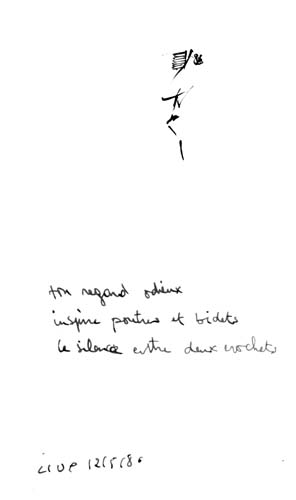 ton regard odieux
inspire poutres et bidets
le silence entre deux crochets
12/5/86